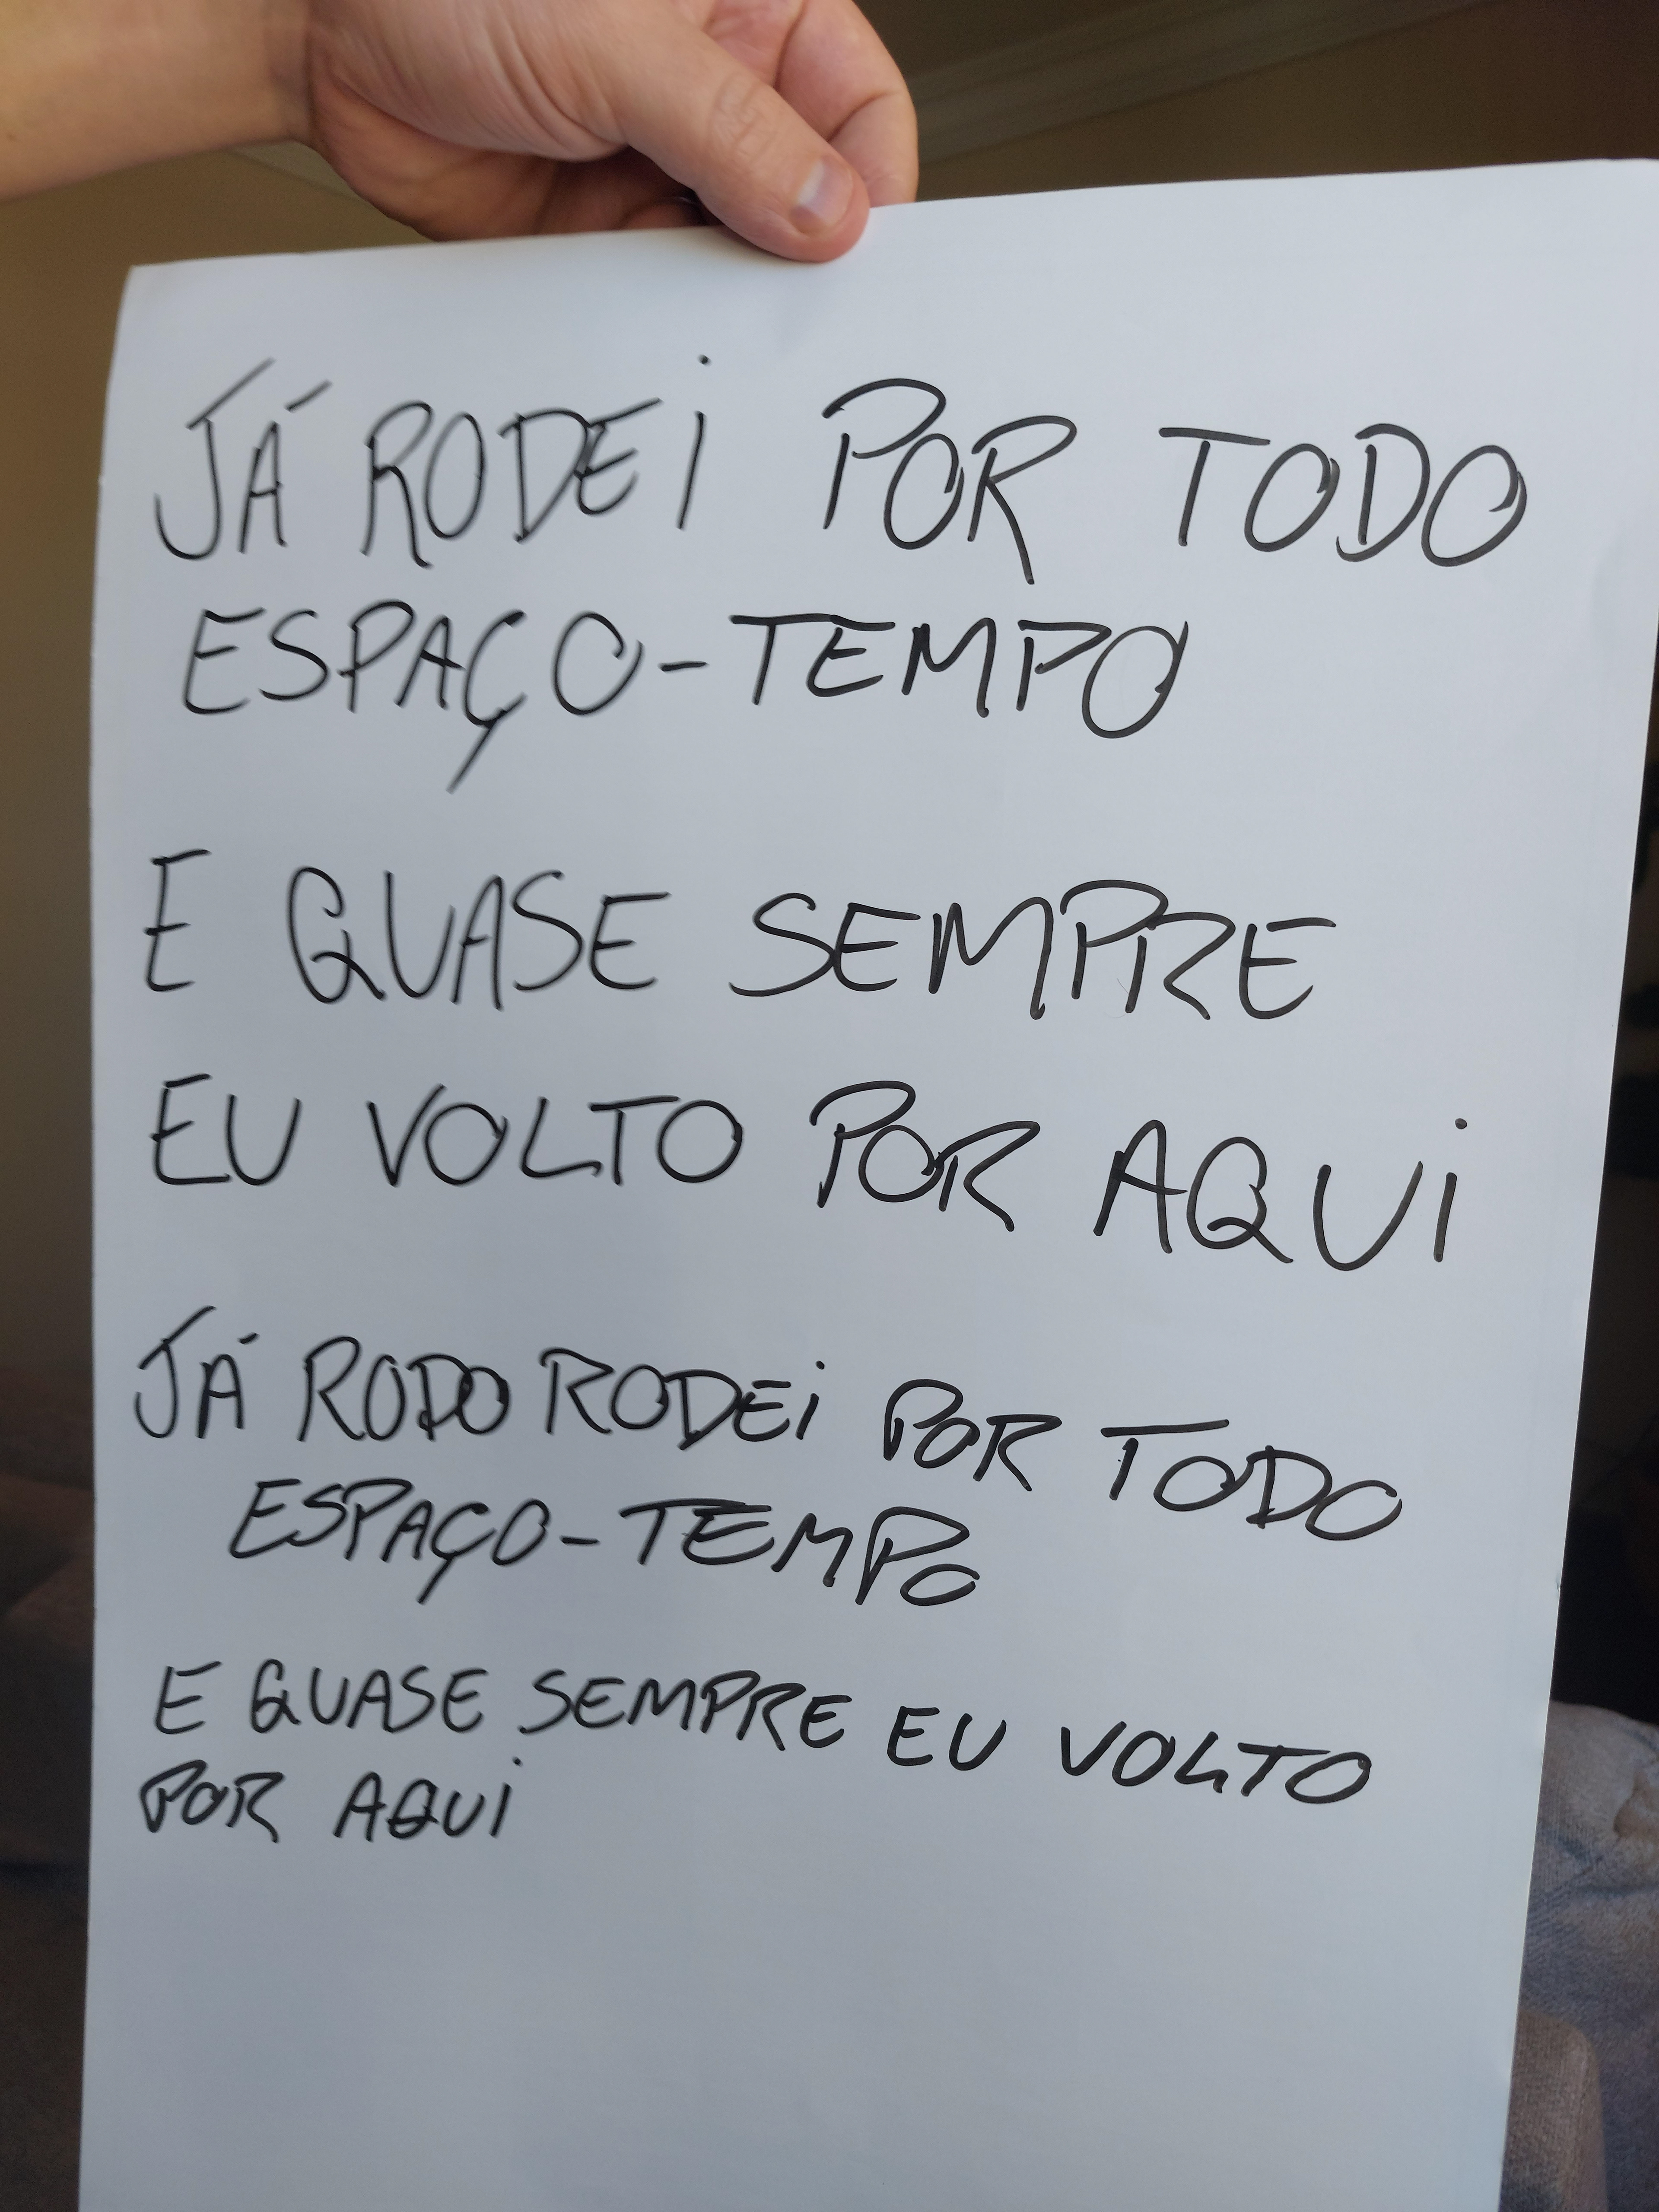 JÁ RODEI POR TODO
ESPAÇO-TEMPO
E QUASE SEMPRE
EU VOLTO POR AQUI
JÁ RODO RODEI POR TODO
ESPAÇO-TEMPO
E QUASE SEMPRE EU VOLTO
POR AQUI